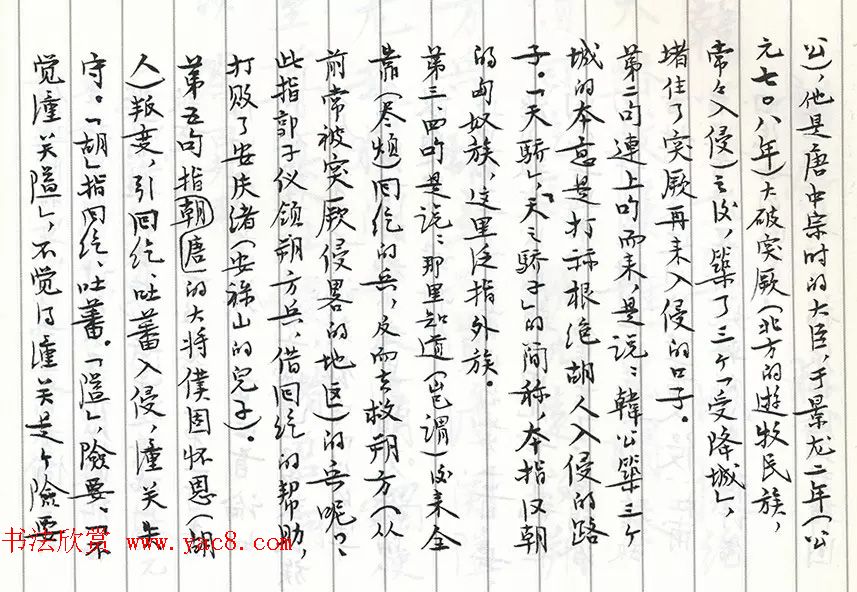 公），他是唐中宗时的大臣，于景龙二年（公
元七〇八年）大破突厥（北方的游牧民族，
常々入侵）之后，築了三个「受降城」，
堵住了突厥再来入侵的口子。
第二句連上句而来，是说：韓公築三个
城的本意是打祘根绝胡人入侵的路
子。「天驕」，「天之驕子」的简称，本指汉朝
的匈奴族，这里泛指外族。
第三、四句是说：那里知道（岂谓）后来全
靠（尽烦）回纥的兵，反而去救朔方（从
前常被突厥侵畧的地区）的兵呢？
此指郭子仪领朔方兵、借回纥的帮助，
打败了安庆绪（安祿山的兒子）。
第五句指朝唐的大将僕固怀恩（胡
人）叛变，引回纥、吐蕃入侵，潼关失
守。「胡」指回纥、吐蕃。「隘」，險要、「不
觉潼关隘」，不觉得潼关是个險要
书法欣赏 www.yac8.com